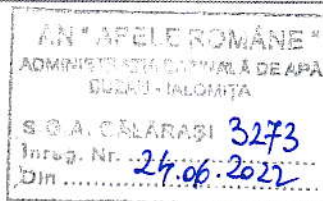 A.N "APELE ROMÂNE"
ADMINISTRAȚIA BAZINALĂ DE APĂ
BUZĂU - IALOMIȚA
S.G.A. CĂLĂRAȘI 3273
Înreg. Nr. ..................
Din ........ 24.06.2022